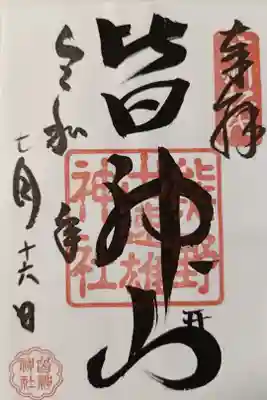 奉拝
皆神山
熊野
出速雄
神社
令和 年
七月十六日
皆神
神社